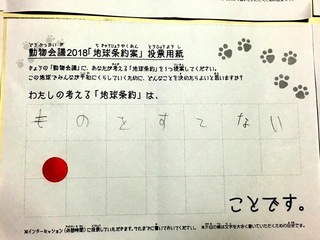 動物会議2018「地球条約案」投票用紙
きょうの「動物会議」に、あなたが考える「地球条約」を1つ提案してください。
この地球でみんなが平和にくらしていくために、どんなことを決めたらよいと思いますか?
わたしの考える「地球条約」は、
ものをすてない
ことです。